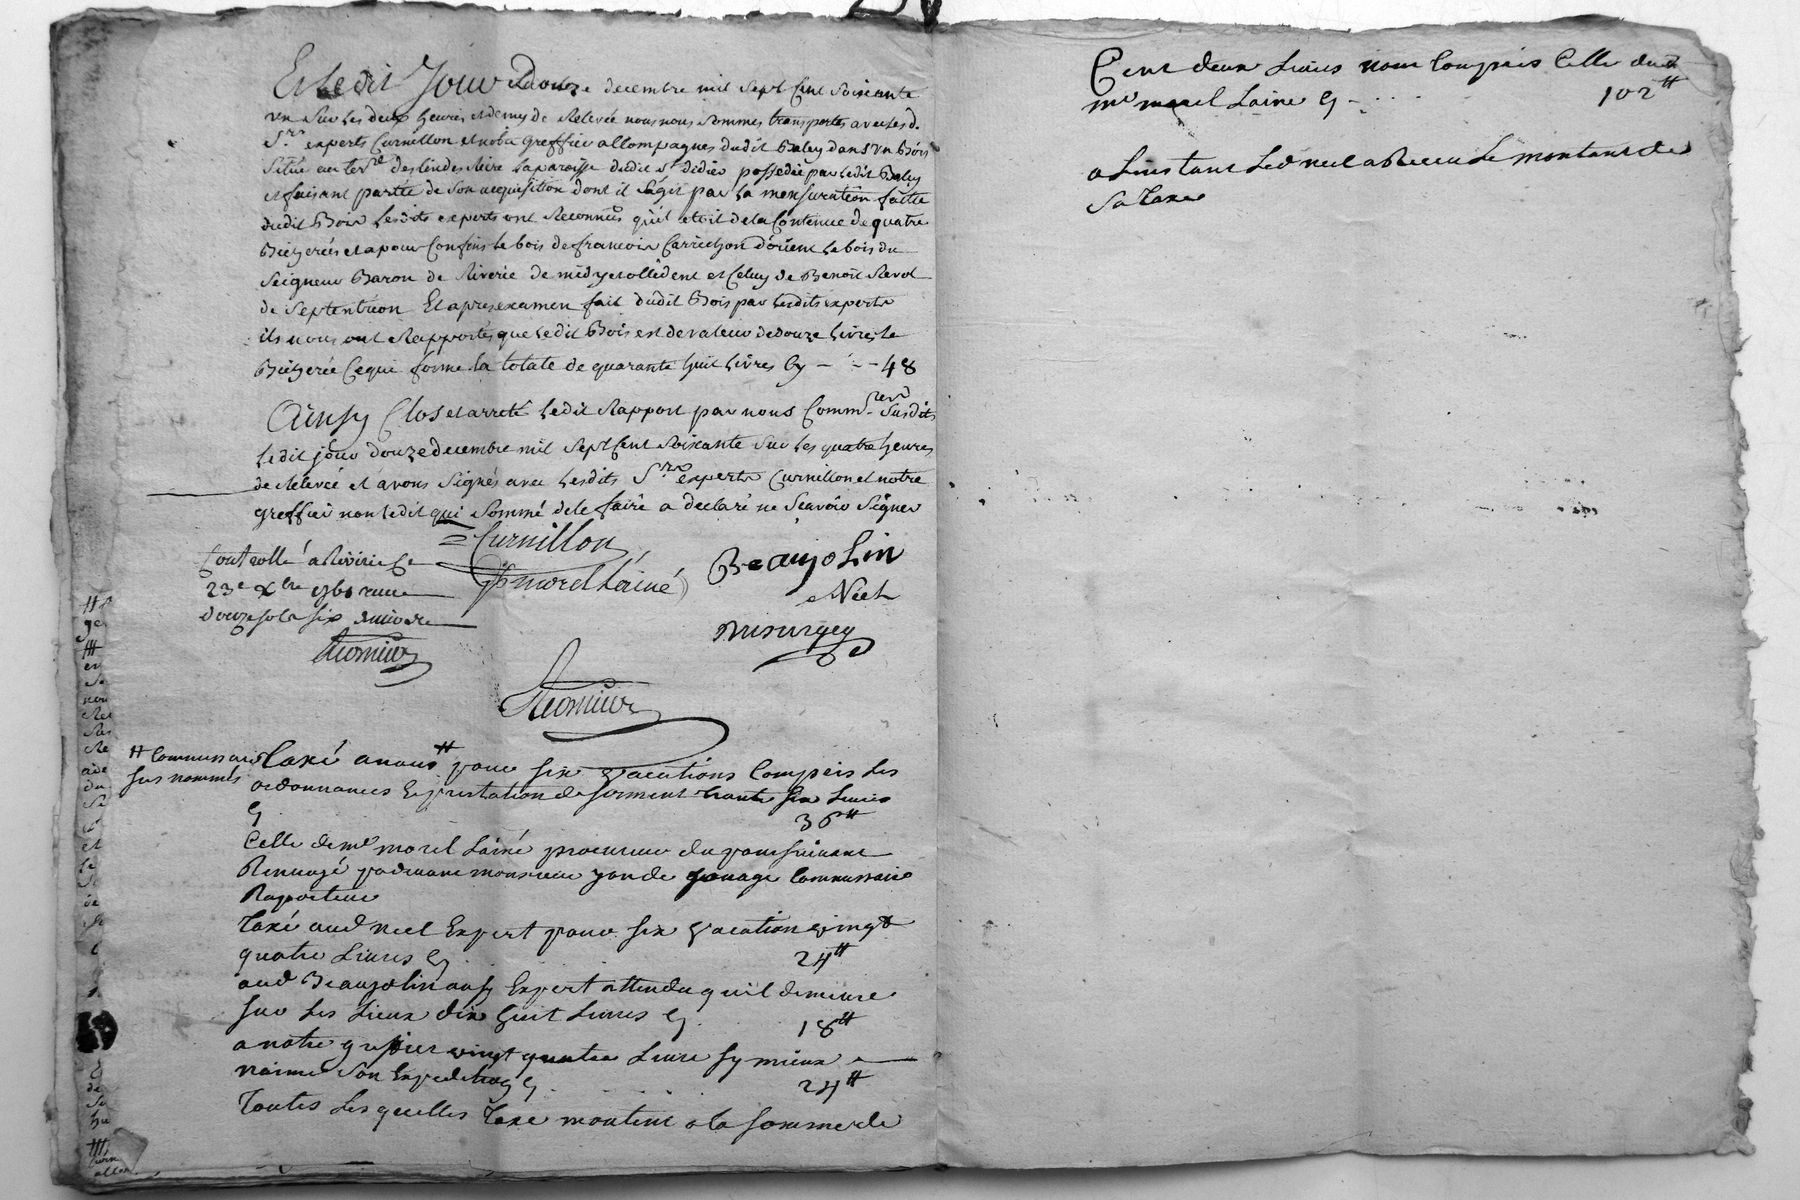 Et ledit Jour douze decembre mil sept Cent Soixante
un Sur Les deux heures et demy de Relevée nous nous Sommes transportes avec lesd.
Srs experts Curnillon et notre Greffier accompagnes dudit Baley dans un Bois
Situé au terre des Lindes Rière la paroisse dudit st didier possedée par ledit Baley
et faisant partie de Son acquisition dont il S'agit par La mensuration faitte
dudit Bois Lesdits experts ont Reconnus qu'il etoit de la Contenue de quatre
Bicherées et a pour Confins le bois de francois Carrichon d'orient Le bois du
Seigneur Baron de Riverie de midy et occident et Celuy de Benoit Revol
de Septentrion Et apres examen fait dudit Bois par Lesdits experts
ils nous ont Rapportés que Ledit Bois est de valeur de douze Livres Le
Bicherée Ce qui forme La totale de quarante huit Livres Cy - - - 48
Ainsy Clos et arreté Ledit Rapport par nous Commres Susdits
Ledit jour douze decembre mil Sept Cent Soixante Sur Les quatre heures
de Relevée et avons Signés avec Lesdits Srs experts Curnillon et notre
greffier non Ledit qui Sommé de le faire a declaré ne Scavoir Signer
Curnillon
Beaujolin
morel Lainé
Neel
Controllé a Riverie Ce
23e Xbre 1761 recu
douze sols six deniers
# Commissaires
sus nommés
Taxé a nous # pour six vacations Compris Les
ordonnances & prestation de serment trente six Livres
Cy 36#
Celle de me morel Lainé procureur du poursuivant
Renvoyé pardevant monsieur Commissaire
Raporteur
Taxé aud neel Expert pour six vacation vingt
quatre Livres Cy 24#
aud Beaujolin aussy Expert attendu quil demeure
sur Les Lieux dix huit Livres Cy 18#
a notre greffier vingt quatre Livre sy mieux
n'aime son Expedition Cy 24#
Toutes Les quelles Taxe montent a la somme de
Cent deux Livres non Compris Celle dud
me morel Lainé Cy - . . . 102#
a Linstant Led neel a Receu Le montant de
sa Taxe